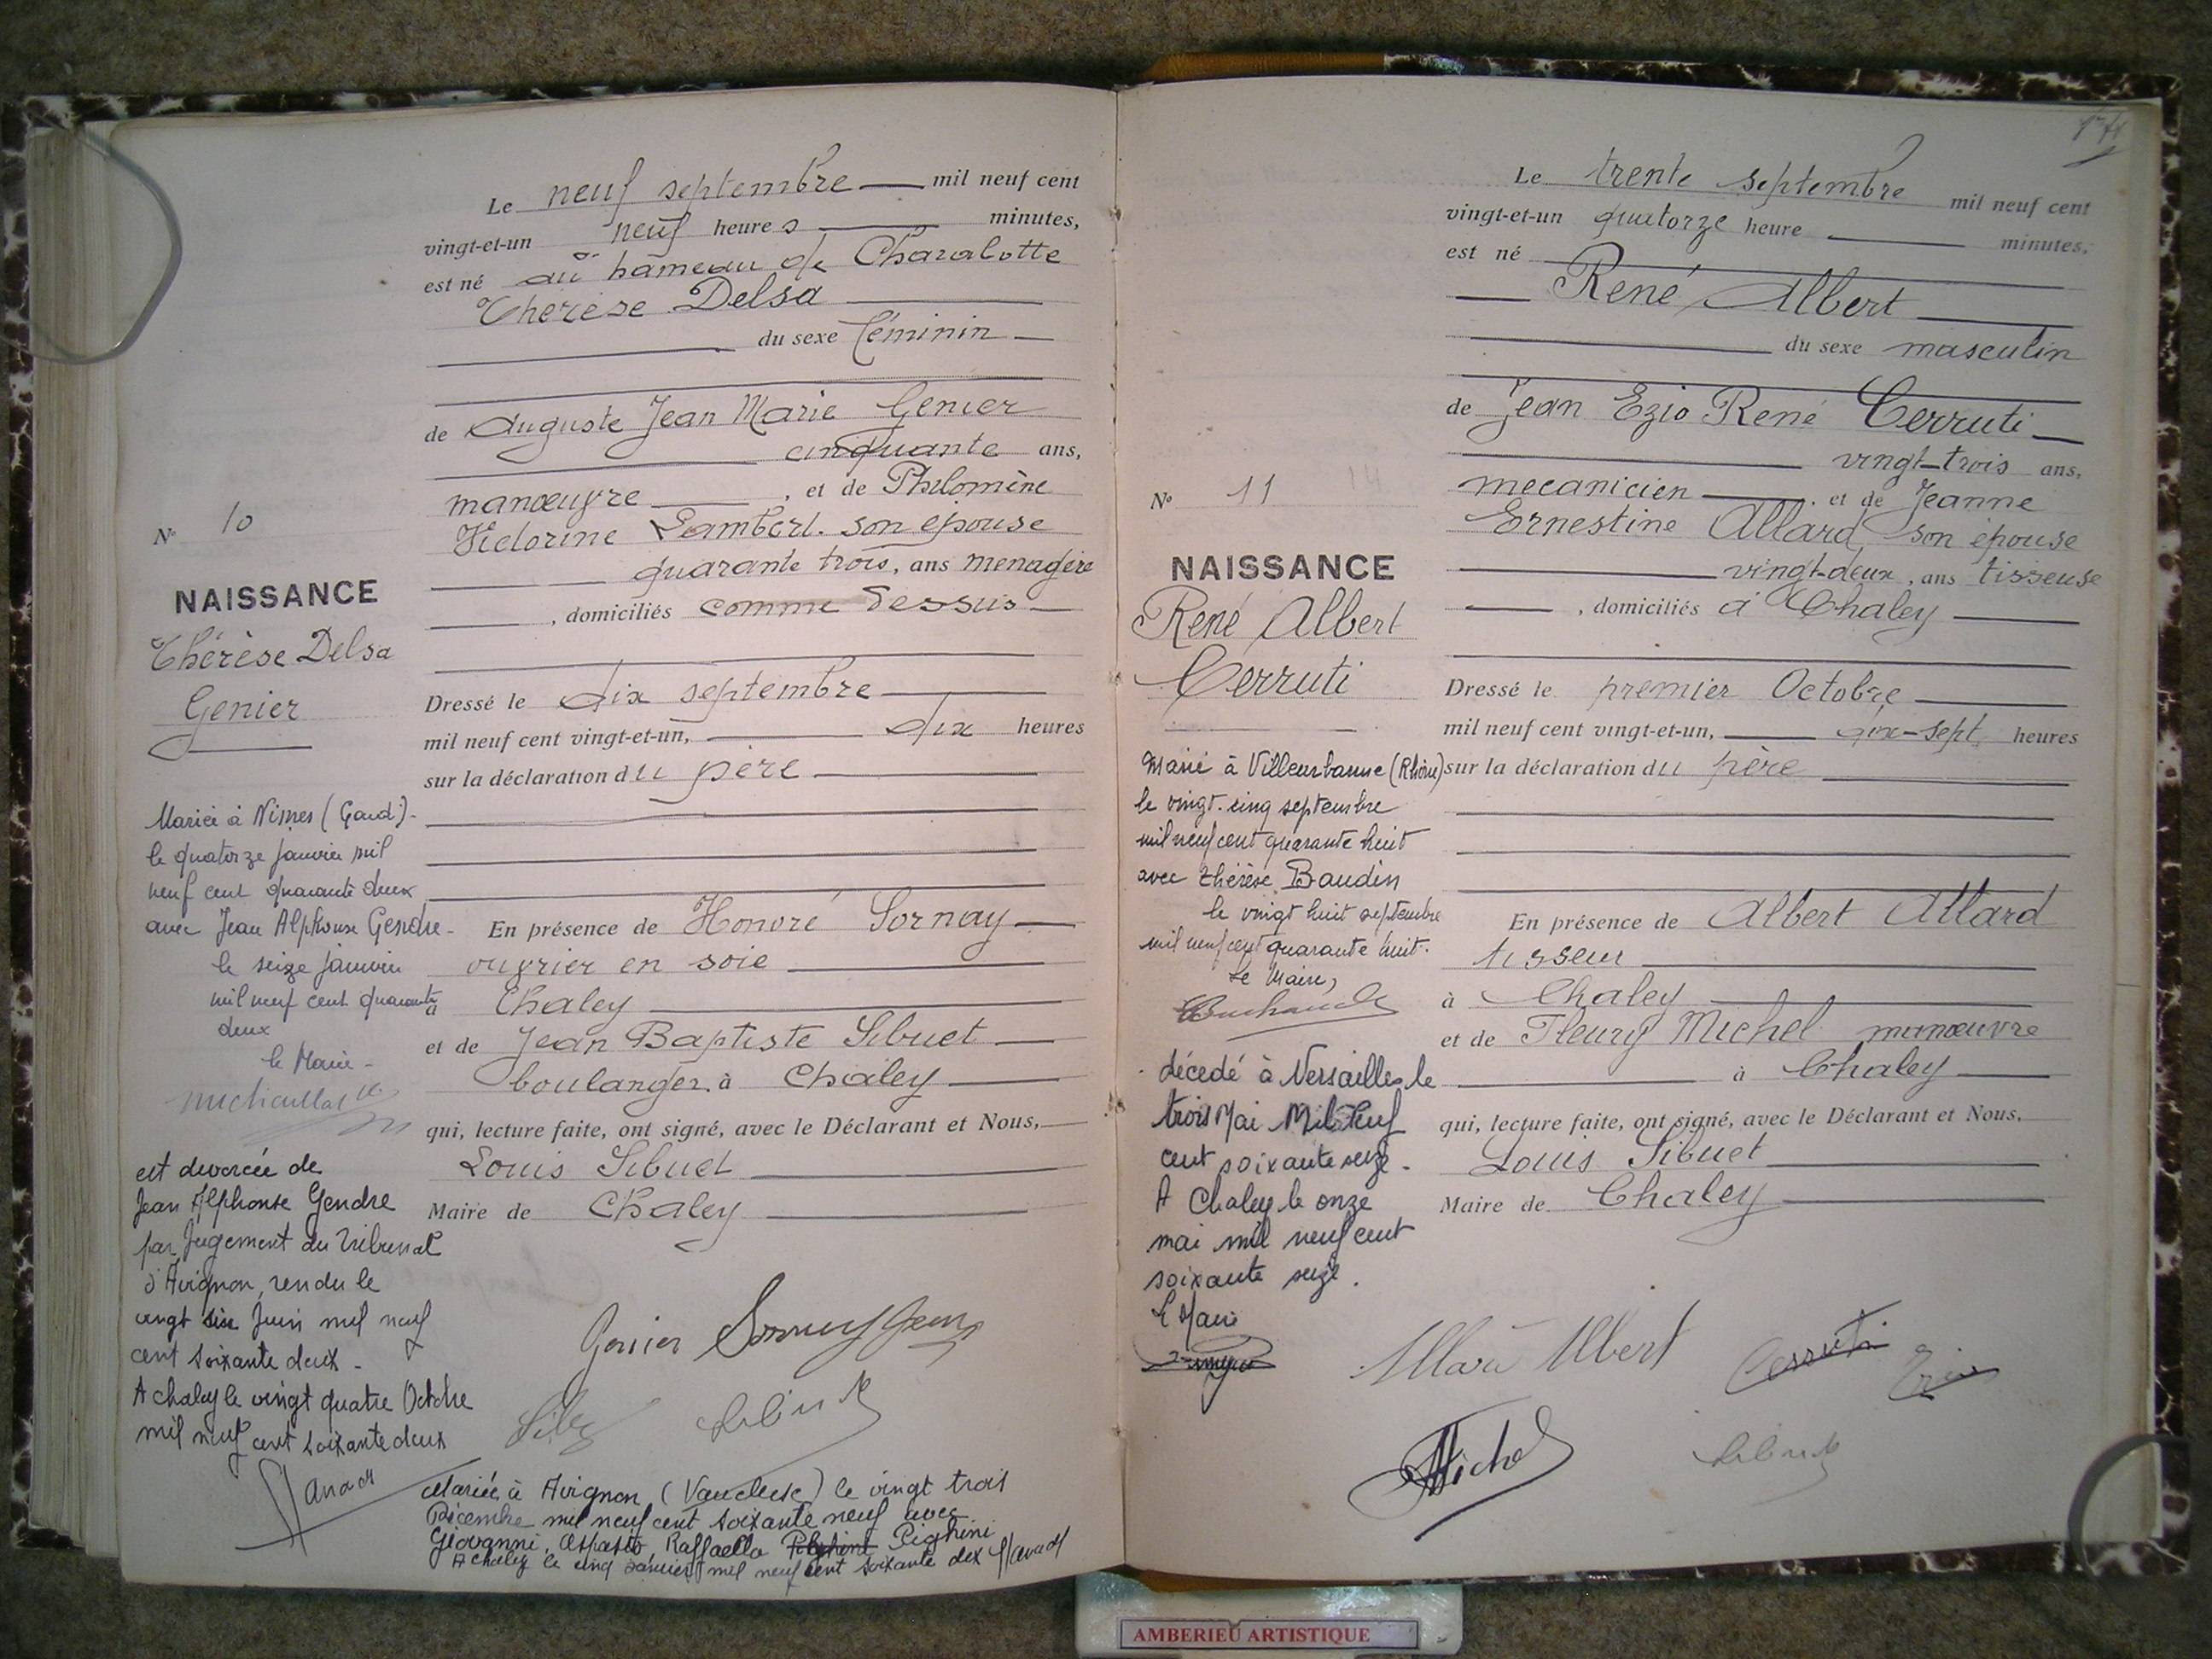 Le neuf septembre mil neuf cent
vingt-et-un neuf heures minutes,
est né au hameau de Charabotte
Thérèse Delsa
du sexe féminin
de Auguste Jean Marie Genier
cinquante ans,
manœuvre , et de Philomène
Victorine Lambert. son épouse
quarante trois, ans menagère
, domiciliés comme dessus
Dressé le dix septembre
mil neuf cent vingt-et-un, dix heures
sur la déclaration du père
En présence de Honoré Sornay
ouvrier en soie
à Chaley
et de Jean Baptiste Sibuet
boulanger à Chaley
qui, lecture faite, ont signé, avec le Déclarant et Nous,
Louis Sibuet
Maire de Chaley
Genier
N° 10
NAISSANCE
Thérèse Delsa
Genier
Mariée à Nimes (Gard)
le quatorze janvier mil
neuf cent quarante deux
avec Jean Alphonse Gendre
le seize janvier
mil neuf cent quarante
deux
le Maire
est divorcée de
Jean Alphonse Gendre
par Jugement du Tribunal
d'Avignon, rendu le
vingt six Juin mil neuf
cent soixante deux
A chaley le vingt quatre Octobre
mil neuf cent soixante deux
Mariée à Avignon (Vaucluse) le vingt trois
Décembre mil neuf cent soixante neuf avec
Giovanni, Raffaello Pighini
A chaley le cinq Janvier mil neuf cent soixante dix
Le trente septembre mil neuf cent
vingt-et-un quatorze heure minutes,
est né
René Albert
du sexe masculin
de Jean Ezio René Cerruti
vingt-trois ans,
mecanicien , et de Jeanne
Ernestine Allard, son épouse
vingt-deux, ans tisseuse
, domiciliés à Chaley
Dressé le premier Octobre
mil neuf cent vingt-et-un, dix-sept heures
sur la déclaration du père
En présence de Albert Allard
tisseur
à Chaley
et de Fleury Michel manœuvre
à Chaley
qui, lecture faite, ont signé, avec le Déclarant et Nous,
Louis Sibuet
Maire de Chaley
Allard Albert Cerruti Ezio
Michel
N° 11 14
NAISSANCE
René Albert
Cerruti
Marié à Villeurbanne (Rhône)
le vingt-cinq septembre
mil neuf cent quarante huit
avec thérèse Baudin
le vingt huit septembre
mil neuf cent quarante huit.
Le Maire,
décedé à Versailles le
trois Mai Mil Neuf
cent soixante seize.
A Chaley le onze
mai mil neuf cent
soixante seize.
Le Maire
AMBERIEU ARTISTIQUE